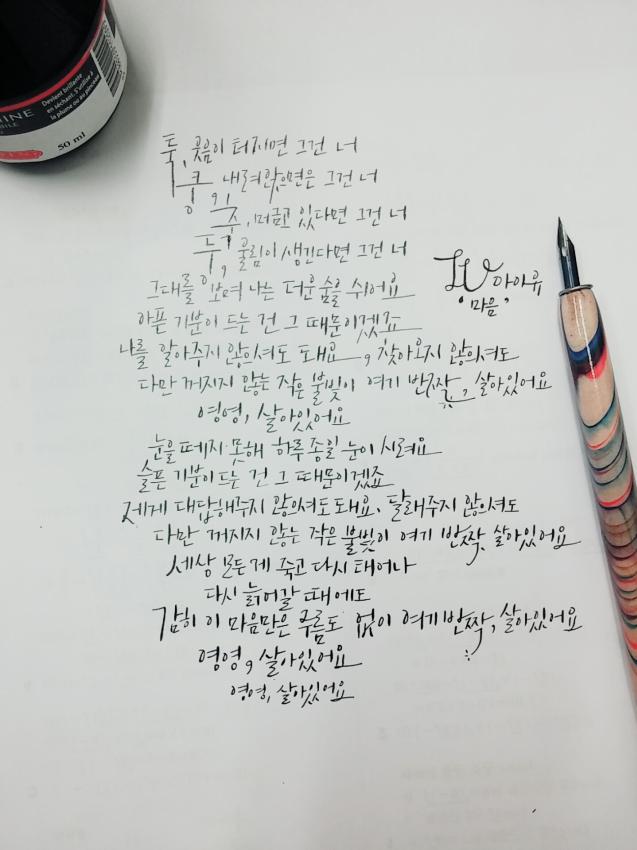 INE
BILE
Devient brillante
en séchant. S'utilise à
la plume ou au pinceau
50 ml
툭, 웃음이 터지면 그건 너
쿵, 내려앉으면은 그건 너
축, 머금고 있다면 그건 너
둥, 울림이 생긴다면 그건 너
그대를 보며 나는 더운 숨을 쉬어요
아픈 기분이 드는 건 그 때문이겠죠
나를 알아주지 않으셔도 돼요, 찾아오지 않으셔도
다만 꺼지지 않는 작은 불빛이 여기 반짝, 살아있어요
영영, 살아있어요
눈을 떼지 못해 하루종일 눈이 시려요
슬픈 기분이 드는 건 그 때문이겠죠
제게 대답해주지 않으셔도 돼요, 달래주지 않으셔도
다만 꺼지지 않는 작은 불빛이 여기 반짝, 살아있어요
세상 모든 게 죽고 다시 태어나
다시 늙어갈 때에도
감히 이 마음만은 주름도 없이 여기 반짝, 살아있어요
영영, 살아있어요
영영, 살아있어요
아이유
'마음'